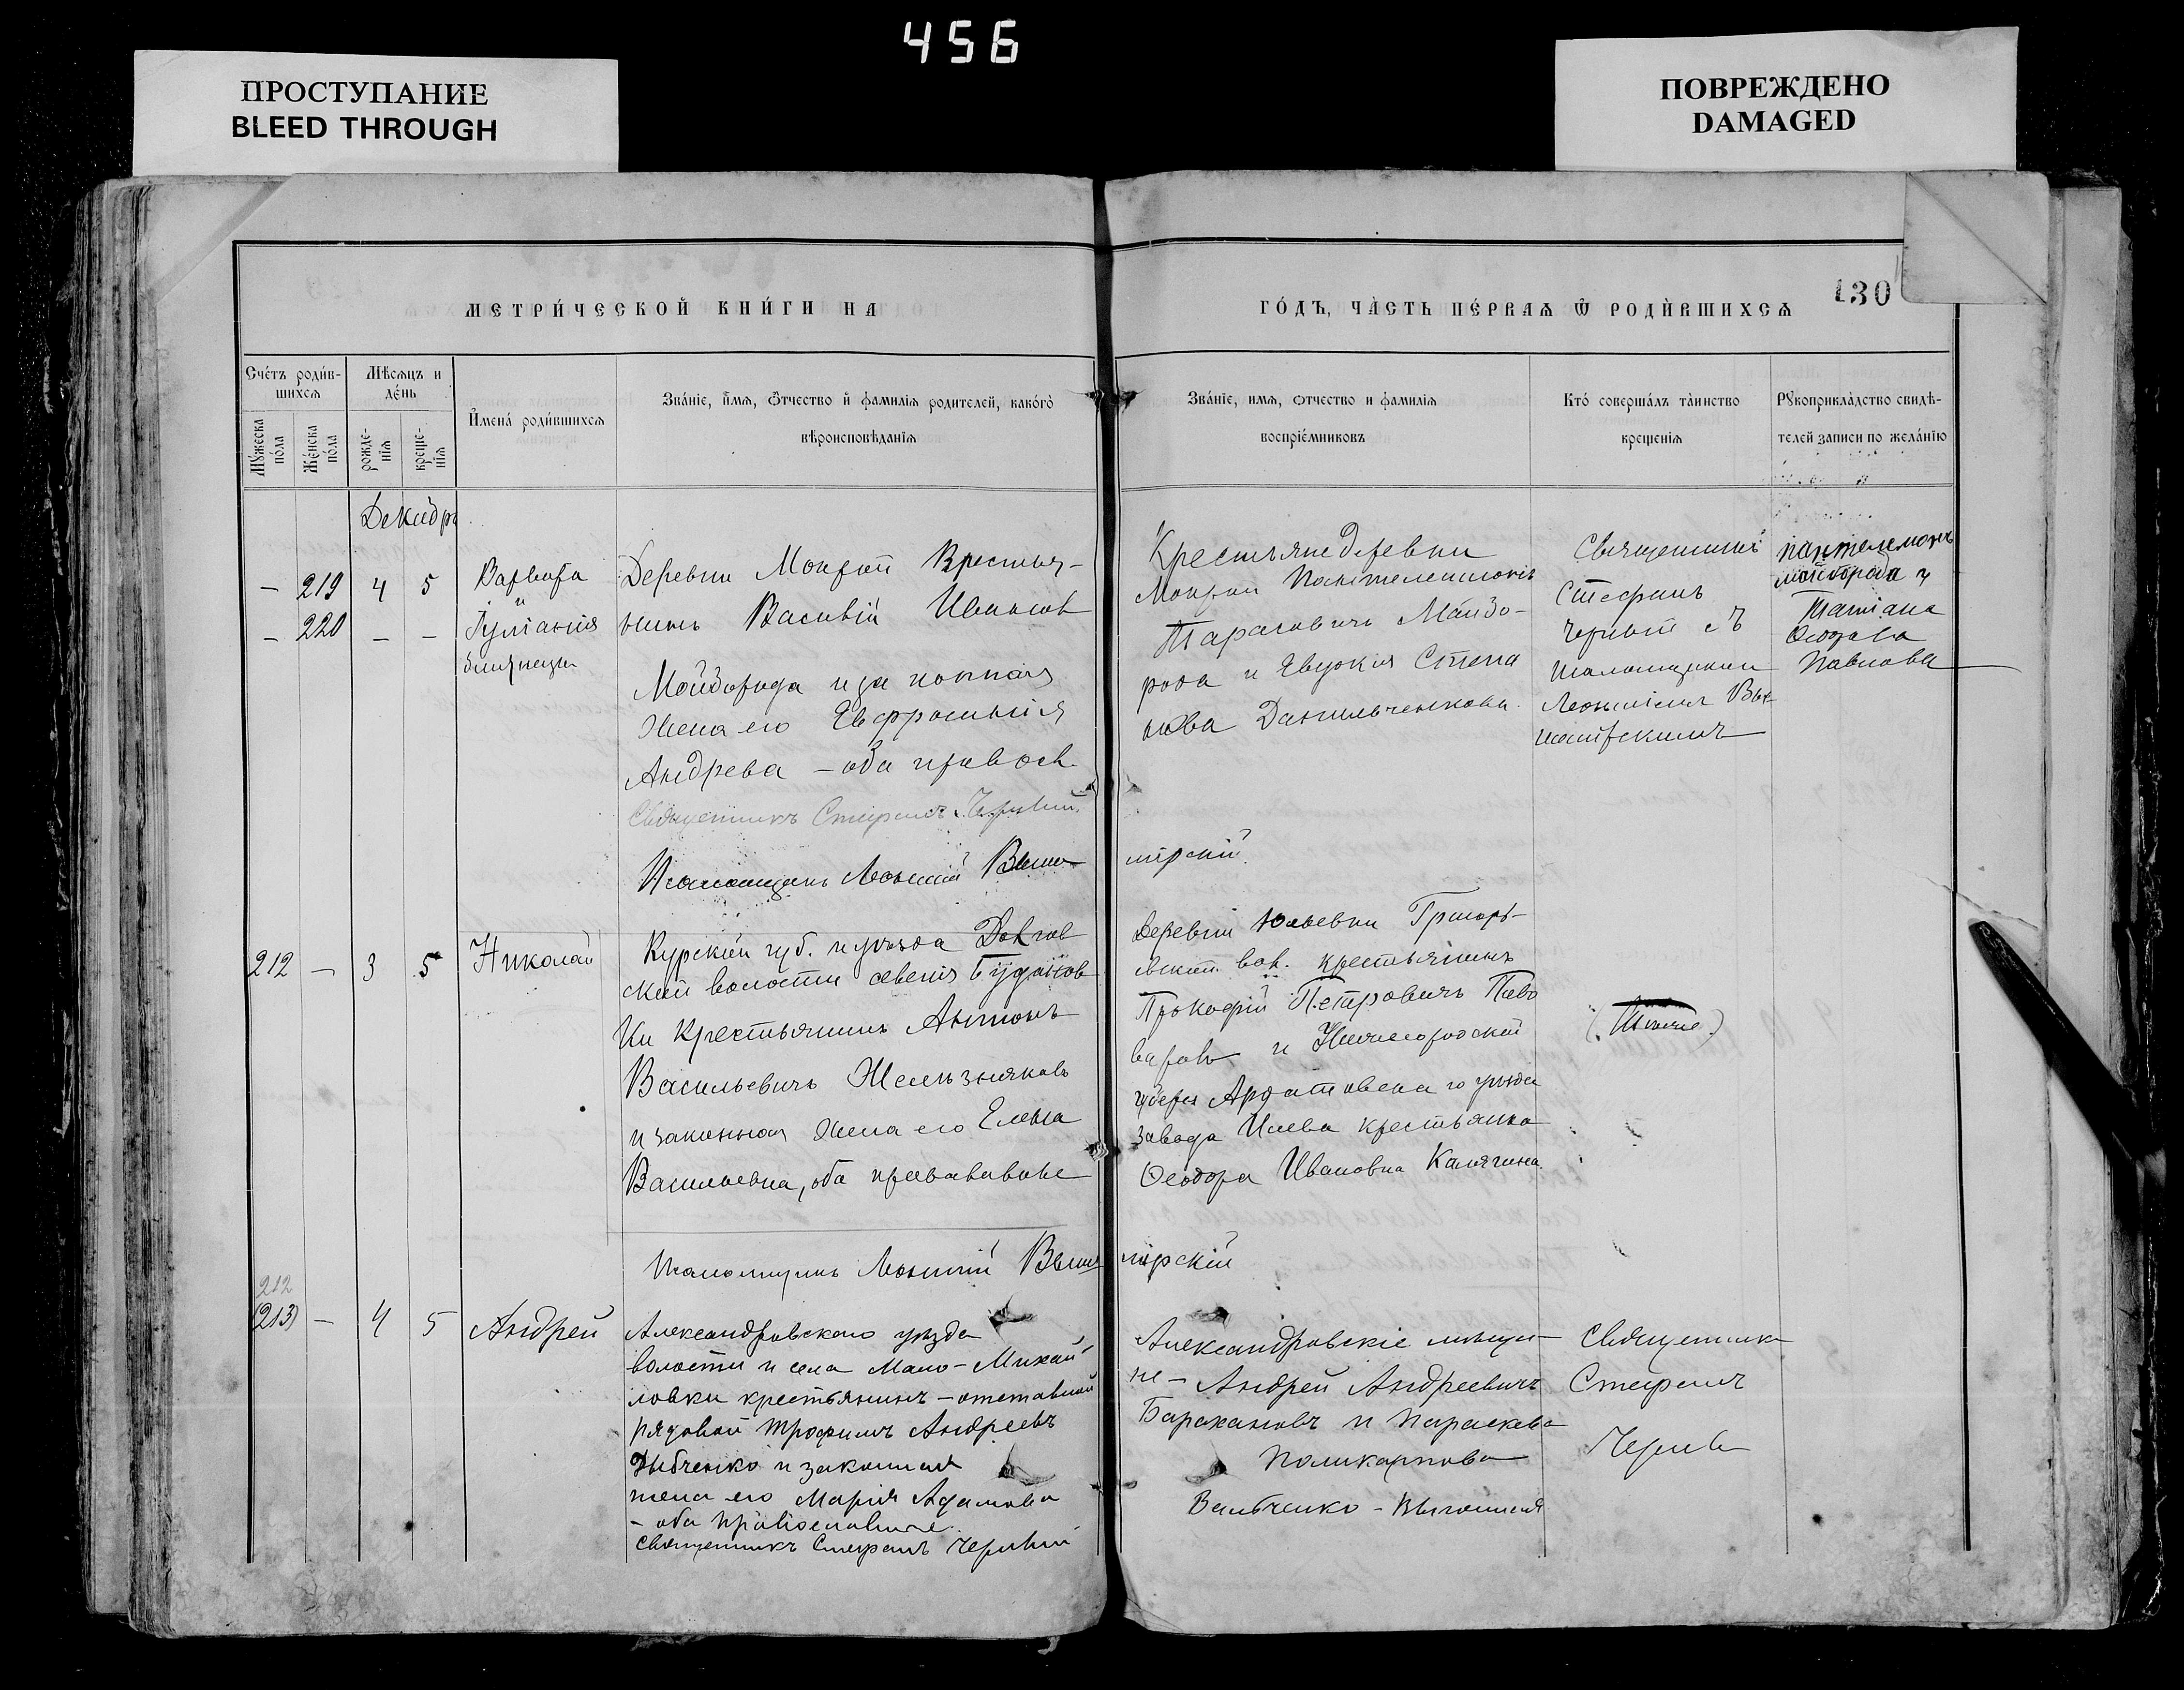 456
ПРОСТУПАНИЕ
BLEED THROUGH
ПОВРЕЖДЕНО
DAMAGED
МЕТРИ́ЧЕСКОЙ КНИ́ГИ НА
ГО́ДЪ, ЧА̀СТЬ ПЕ́РВАѦ Ѿ РОДЍВШИХСѦ
130
Счéтъ роди́в-
шихсѧ
Мꙋ́жеска
по́ла
Же́нска
по́ла
Мѣ́сѧцъ и
де́нь
рожде-
нїѧ
креще-
нїѧ
И҆мена̀ роди́вшихсѧ
Зва́нїе, и҆́мѧ, ѻ҆́тчество и҆ фамилїѧ родителей, како́гѡ
вѣроисповѣ́данїѧ
Зва́нїе, имѧ, ѻтчество и фамилїѧ
воспрїе́мниковъ
Кто́ соверша́лъ та̀инство
креще́нїѧ
Рꙋкоприкла̀дство свидѣ́-
телей записи по жела́нїю
Декабрь
– 219 4 5
Варвара
и
– 220 – –
Іуліанія
близнецы
Деревни Мокрой Крестья-
нинъ Василій Ивановъ
Майборода и законная
жена его Евфросинія
Андреева – оба правосл.
Священникъ Стефанъ Черный
Псаломщикъ Леонтій Выше-
мірскій
Крестьяне деревни
Мокрой Пантелеимонъ
Тарасовичъ Майбо-
рода и Евдокія Степа
нова Данильченкова.
Священникъ
Стефанъ
Черный съ
псаломщикомъ
Леонтіемъ Вы
шемірскимъ
Пантелемонъ
Майборода и
Татіана
Ѳедорова
Павлова
212 – 3 5
Николай
Курской губ. и уезда
ской волости
ки крестьянинъ Антонъ
Васильевичъ Желѣзняковъ
и законная жена его Елена
Васильевна, оба православные
Псаломщикъ Леонтій Выше
мірскій
Деревни Юльевки Григорь-
евской вол. крестьянинъ
Прокофій Петровичъ Пиво
варовъ и Нижегородской
губерн Ардатовскаго уезда
завода Илева крестьянка
Ѳеодора Ивановна Калягина.
212
(213) – 4 5
Андрей
Александровскаго уѣзда
волости и села Мало-Михай
ловки крестьянинъ – отставной
рядовой Трофимъ Андреевъ
и законная
жена его Марія Адамова
– оба православные.
Священникъ Стефанъ Черный
Александровскіе мѣща-
не – Андрей Андреевичъ
Баракановъ и Параскева
Поликарпова
Священникъ
Стефанъ
Черный